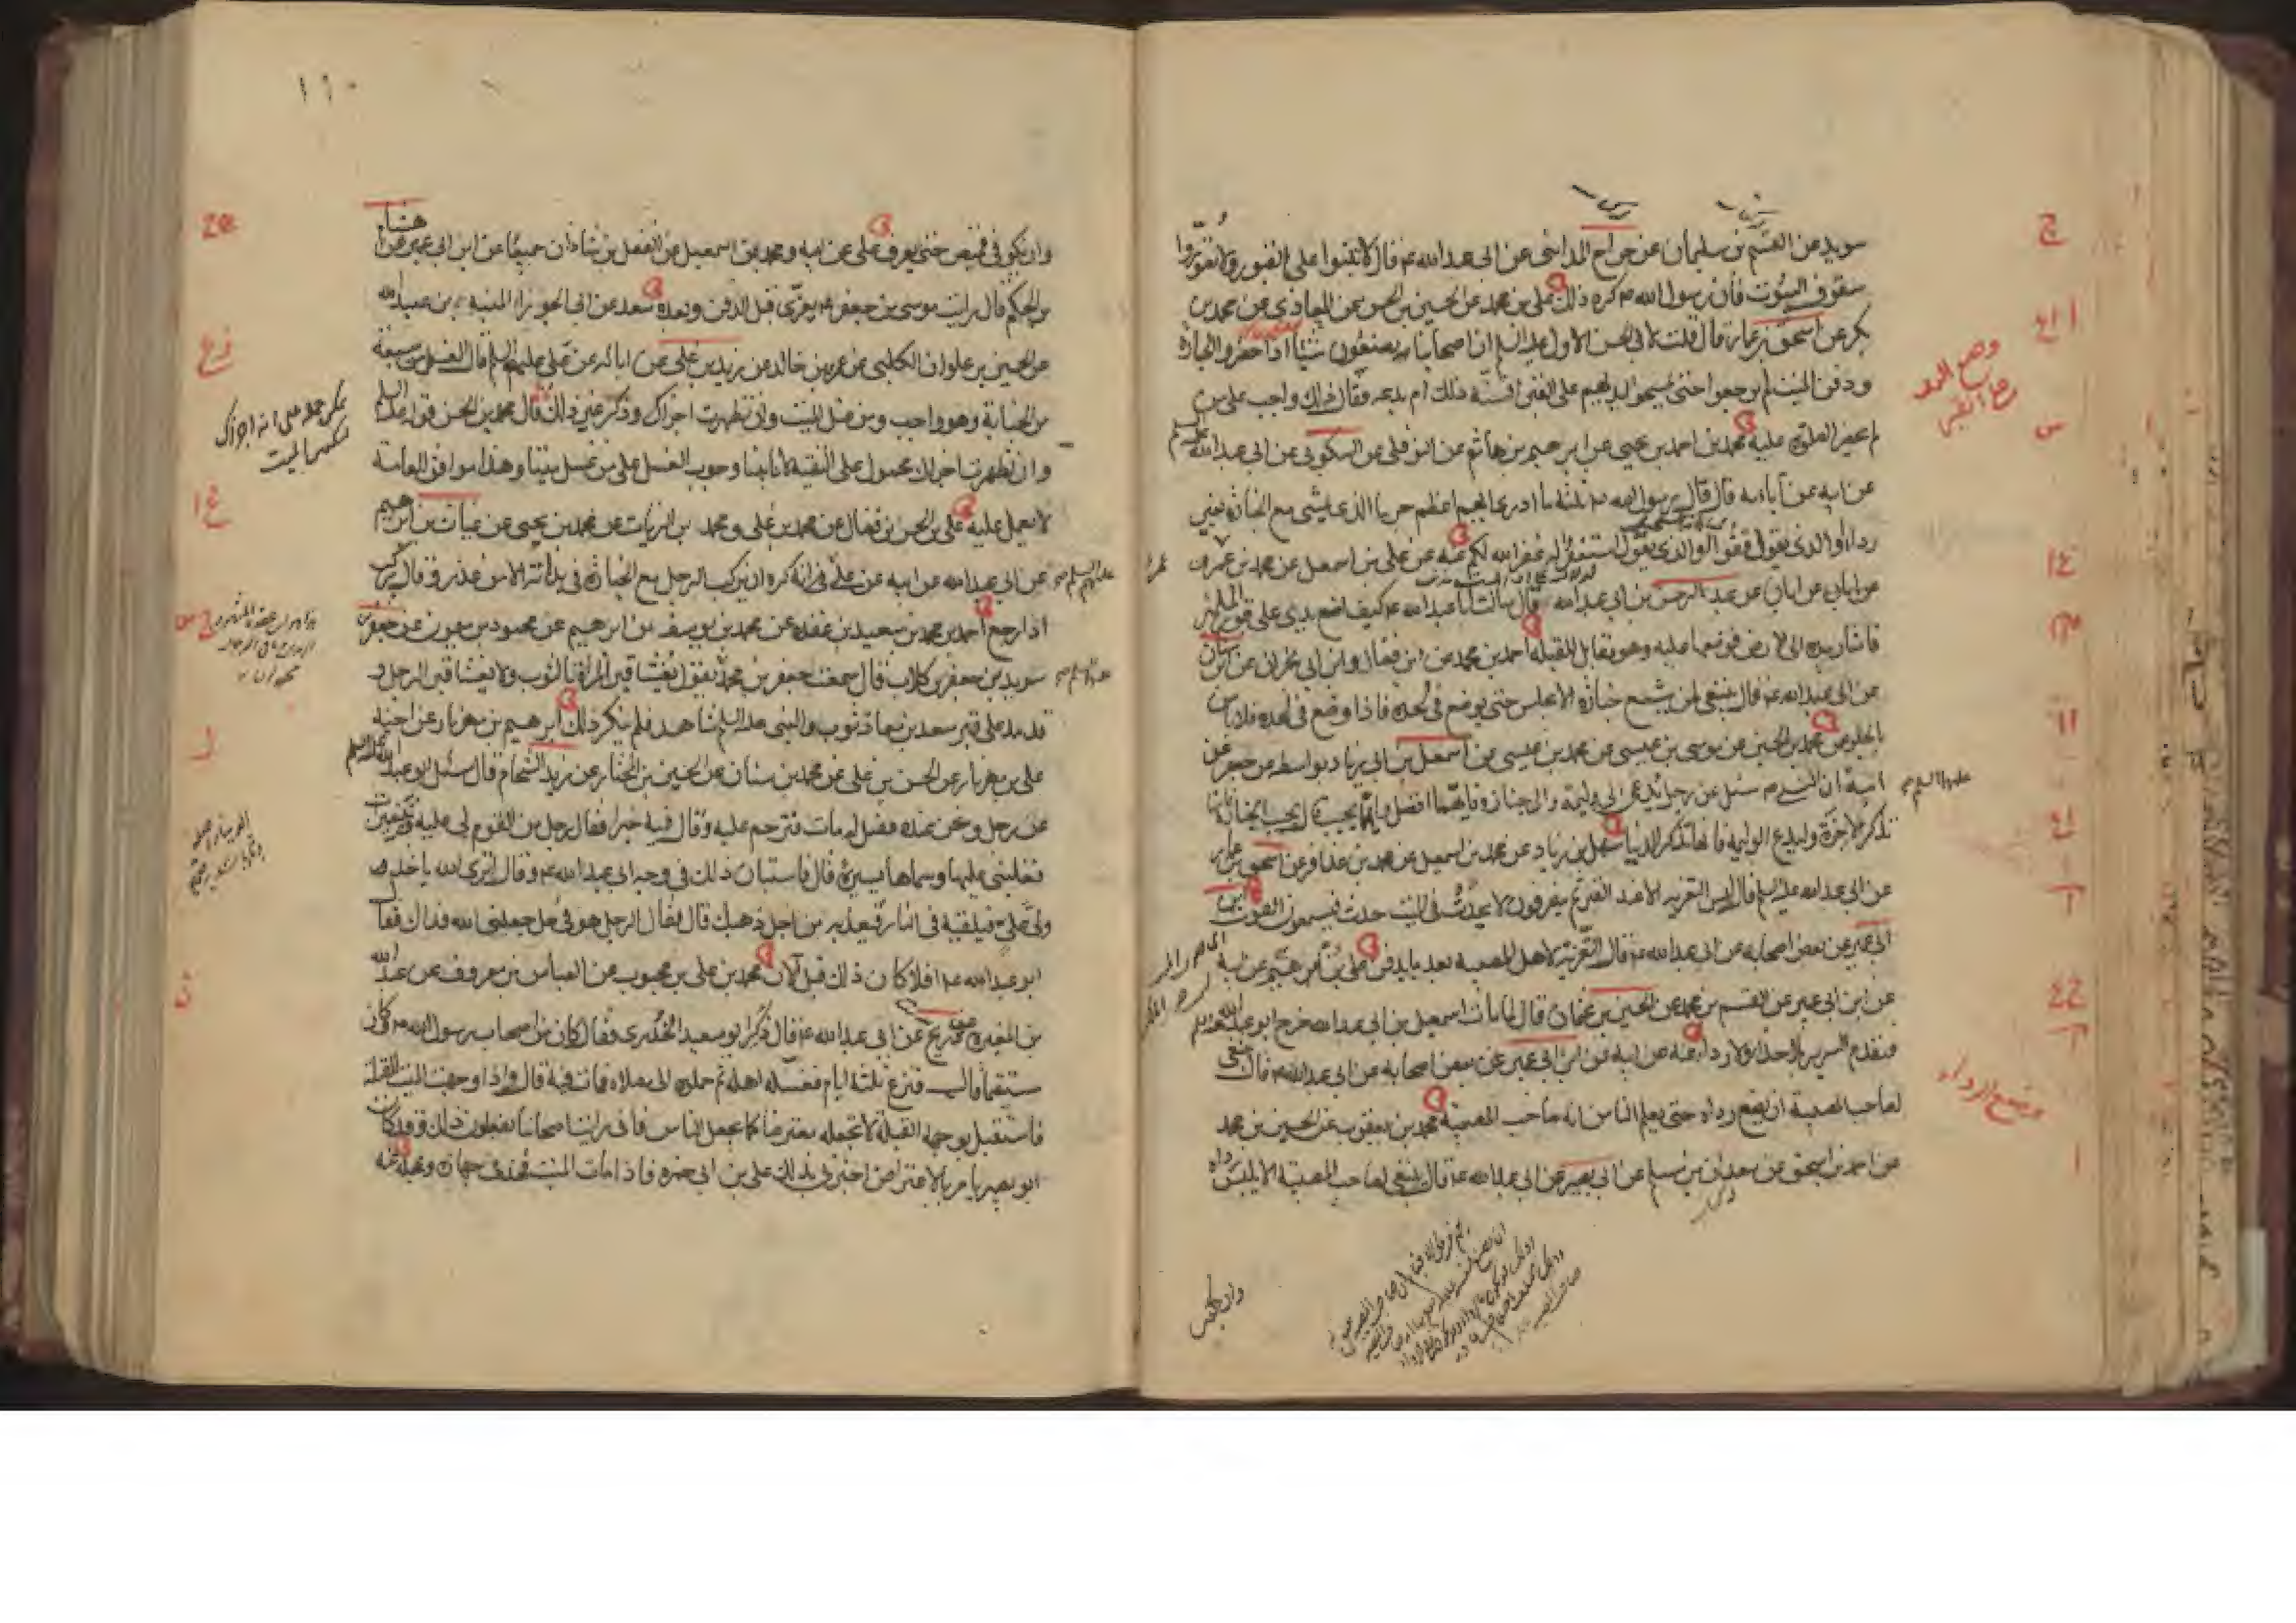 سويد عن القسم بن سليمان عن جراح المدائني عن ابى عبد الله ع قال لا تبنوا على القبور ولا تصوروا
سقوف البيوت فان رسول الله ص كره ذلك على بن محمد عن الحسين بن الحسن عن المعاذى عن محمد بن
بكر عن اسحق بن عمار قال قلت لابى الحسن الاول عليه السلم ان اصحابنا يصنعون شيئا اذا حضروا الجنازة
ودفن الميت لم يرجعوا حتى يمسحوا ايديهم على القبر افسنة ذلك ام بدعه فقال ذلك واجب على من
لم يحضر الصلوة عليه محمد بن احمد بن يحيى عن ابرهيم بن هاشم عن النوفلى عن السكونى عن ابى عبد الله عليه السلم
عن ابيه عن آبائه قال قال رسول الله ص ثلثة ما ادرى ايهم اعظم جرما الذى يمشى مع الجنازة بغير
رداء او الذى يقول قفوا او الذى يقول استغفروا له غفر الله لكم عنه عن على بن اسمعيل عن محمد بن عمرو
عن ابان عن عبد الرحمن بن ابى عبد الله قال سالت ابا عبد الله ع كيف اضع يدى على قبور المسلمين
فاشار بيده الى الارض فوضعها عليه وهو مقابل القبلة احمد بن محمد عن ابن فضال وابن ابى نجران عن ابن سنان
عن ابى عبد الله ع قال ينبغى لمن شيع جنازة الا يجلس حتى يوضع فى لحده فاذا وضع فى لحده فلا باس
بالجلوس محمد بن الحسين عن موسى بن عيسى عن محمد بن عيسى عن اسمعيل بن ابى زياد بواسطه عن جعفر عن
ابيه ان النبى ص سئل عن رجل يدعى الى وليمة والى جنازة فايهما افضل وايهما يجيب قال يجيب الجنازة فانها
تذكر الاخرة وليدع الوليمة فانها تذكر الدنيا سهل بن زياد عن محمد بن اسمعيل عن محمد بن عذافر عن اسحق بن عمار
عن ابى عبد الله عليه السلم قال ليس التعزيه الا عند القبر ثم ينصرفون لا يحدث فى الميت حدث فيسمعون الصوت ابن
ابى عمير عن بعض اصحابه عن ابى عبد الله ع قال التعزية لاهل المصيبة بعد ما يدفن على بن ابرهيم عن ابيه
عن ابن ابى عمير عن القسم بن محمد عن الحسين بن عثمان قال لما مات اسمعيل بن ابى عبد الله خرج ابو عبد الله عليه السلم
فتقدم السرير بلا حذاء ولا رداء عنه عن ابيه عن ابن ابى عمير عن بعض اصحابه عن ابى عبد الله ع قال ينبغى
لصاحب المصيبة ان يضع رداه حتى يعلم الناس انه صاحب المصيبة محمد بن يعقوب عن الحسين بن محمد
عن احمد بن اسحق عن سعدان بن مسلم عن ابى بصير عن ابى عبد الله ع قال ينبغى لصاحب المصيبة الا يلبس رداه
وان يكون
١١٠
وان يكون فى قميص حتى يعرف على عن ابيه ومحمد بن اسمعيل عن الفضل بن شاذان جميعا عن ابن ابى عمير عن هشام
بن الحكم قال رايت موسى بن جعفر ع يعزى قبل الدفن وبعده سعد عن ابى الجوزاء المنبه بن عبد الله
عن الحسين بن علوان الكلبى عن عمرو بن خالد عن زيد بن على عن ابائه عن على عليهم السلم قال الغسل من سبعة
من الجنابة وهو واجب ومن غسل الميت وان تطهرت اجزاك وذكر غير ذلك قال محمد بن الحسن قوله عليه السلم
وان تطهرت اجزاك محمول على التقية لانا بينا وجوب الغسل على من غسل ميتا وهذا موافق للعامة
لا يعمل عليه على بن الحسن بن فضال عن محمد بن على ومحمد بن الزيات عن محمد بن يحيى عن غياث بن ابرهيم
عن ابى عبد الله عن ابيه عن على ع انه كره ان يركب الرجل مع الجنازة فى بدأته الا من عذر وقال يركب
اذا رجع احمد بن محمد بن سعيد بن عقده عن محمد بن يوسف بن ابرهيم عن محمود بن ميمون عن جعفر بن
سويد بن جعفر بن كلاب قال سمعت جعفر بن محمد يقول يغشا قبر المراة بالثوب ولا يغشا قبر الرجل و
قد مد على قبر سعد بن معاذ ثوب والنبى عليه السلم شاهد فلم ينكر ذلك ابرهيم بن مهزيار عن اخيه
على بن مهزيار عن الحسن بن على عن محمد بن سنان عن الحسين بن المختار عن زيد الشحام قال سئل ابو عبد الله عليه السلم
عن رجل ونحن عنده فقيل له مات فترحم عليه وقال فيه خيرا فقال رجل من القوم لى عليه دنينيرات
فغلبنى عليها وسماها يسيرة قال فاستبان ذلك فى وجه ابى عبد الله ع وقال اترى الله ياخذ
ولى على فيلقيه فى النار فيعذبه من اجل ذهبك قال فقال الرجل هو فى حل جعلنى الله فداك فقال
ابو عبد الله ع افلا كان ذلك قبل الان محمد بن على بن محبوب عن العباس بن معروف عن عبد الله
بن المغيرة عن ذريح عن ابى عبد الله ع قال ذكر ابو سعيد الخدرى فقال كان من اصحاب رسول الله ص كان
مستقيما قال فنزع ثلثة ايام فغسله اهله ثم حملوه الى مصلاه فمات فيه قال واذا وجهت الميت للقبلة
فاستقبل بوجهه القبلة لا تجعله معترضا كما يجعل الناس فانى رايت اصحابنا يفعلون ذلك وقد كان
ابو بصير يامر بالاعتراض اخبرنى بذلك على بن ابى حمزه فاذا مات الميت فخذ فى جهازه وعجله عنه